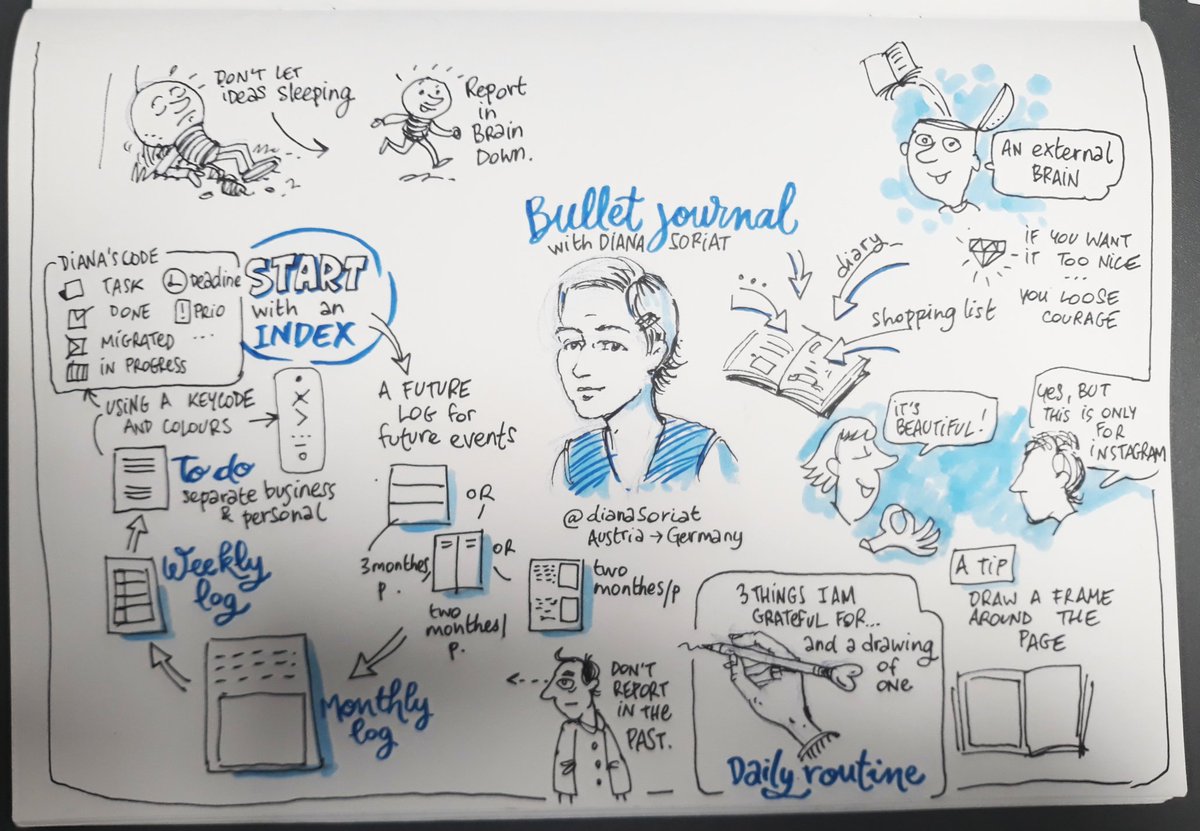 DON'T LET
ideas sleeping
Report
in
Brain
Down.
AN external
BRAIN
Bullet journal
with DIANA SORIAT
...
diary
shopping list
iF YOU WANT
iT TOO NiCE
...
YOU LOOSE
COURAGE
DiANA'S CODE
TASK
DONE
MiGRATED
iN PROGRESS
Deadine
! PRiO
...
START
with an
INDEX
A FUTURE
LOG for
future events
USiNG A KEYCODE
AND COLOURS
To do
separate business
& personal
Weekly
log
Monthly
log
OR
OR
3 monthes/
p.
two
monthes/
p.
two
monthes/p
@dianasoriat
Austria → Germany
iT'S
BEAUTiFUL!
Yes, BUT
THiS iS ONLY
FOR
iNSTAGRAM
DON'T
REPORT
IN THE
PAST.
3 THiNGS I AM
GRATEFUL FOR...
and a drawing
of
one
Daily routine
A TiP
DRAW A FRAME
AROUND THE
PAGE